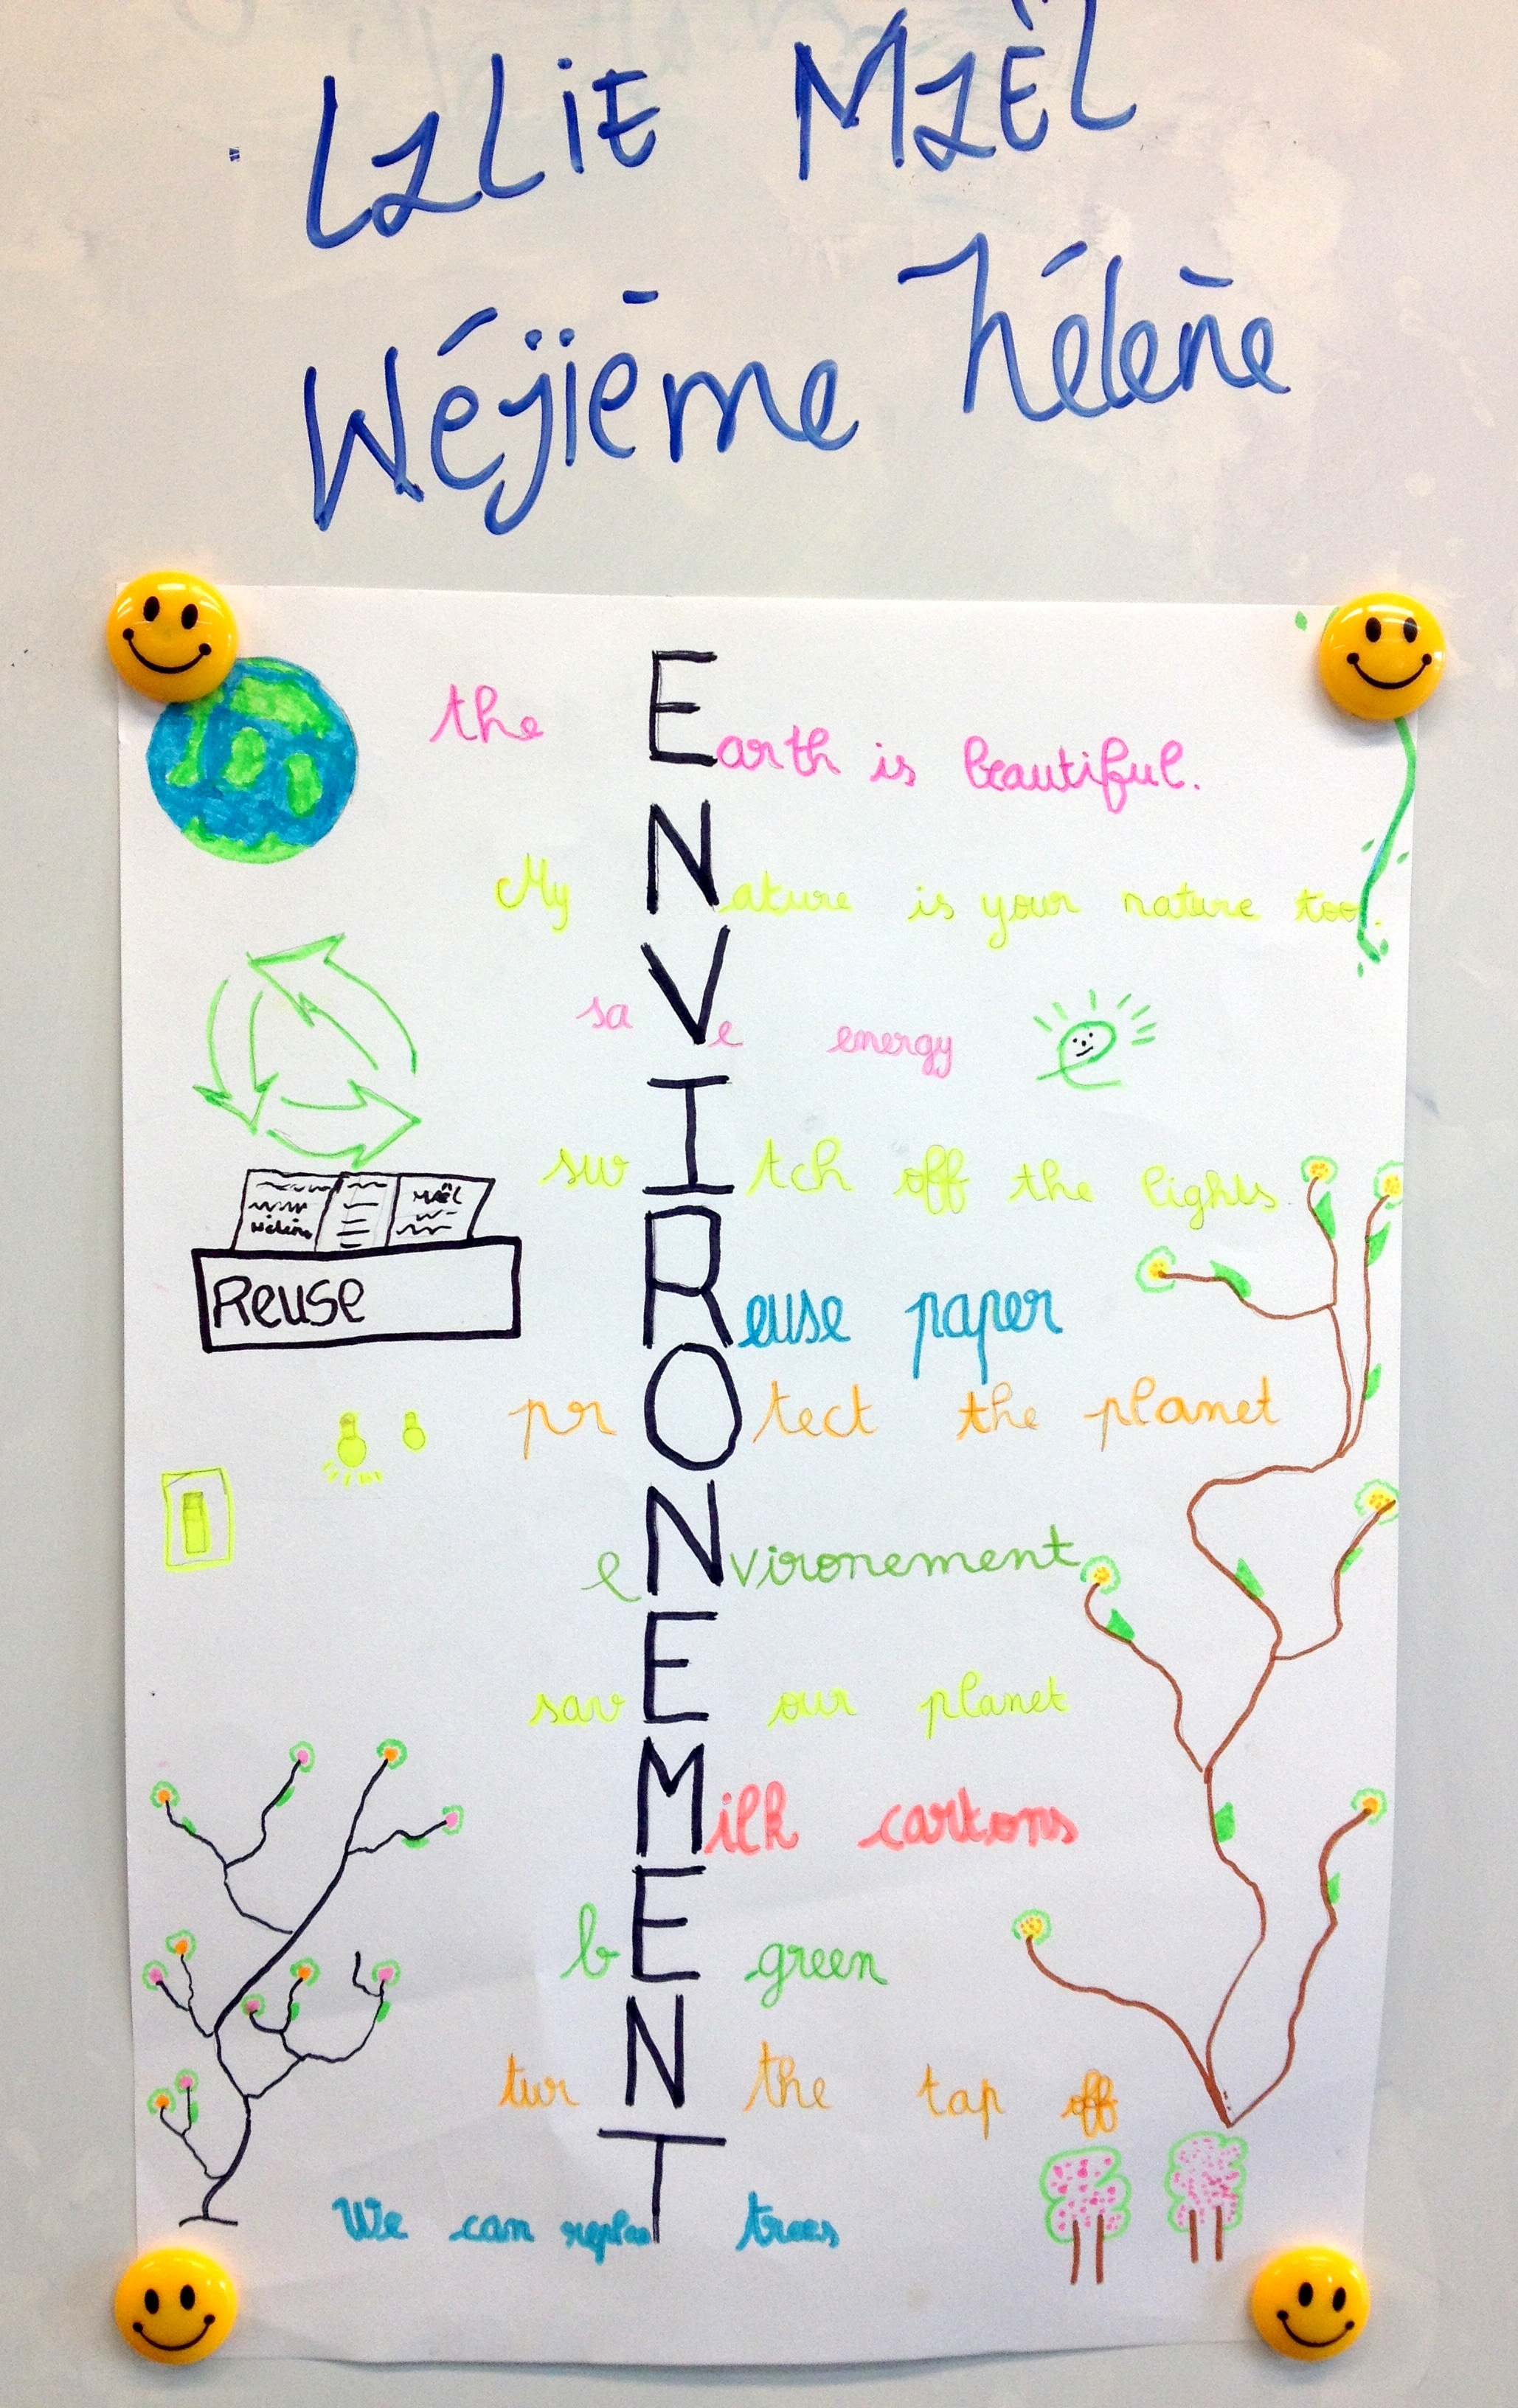 LALiE MAËL
Wéjième Hélène
the Earth is beautiful.
My Nature is your nature too.
saVe energy
swItch off the lights
Hélène
MAËL
Reuse
Reuse paper
prOtect the planet
eNvironement
savE our planet
Milk cartons
bE green
turN the tap off
We can replanT trees